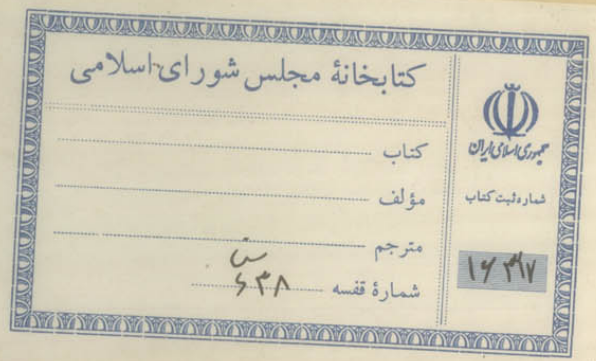 کتابخانهٔ مجلس شورای اسلامی
کتاب
مؤلف
مترجم
شمارهٔ قفسه
۶۳۸
جمهوری اسلامی ایران
شماره ثبت کتاب